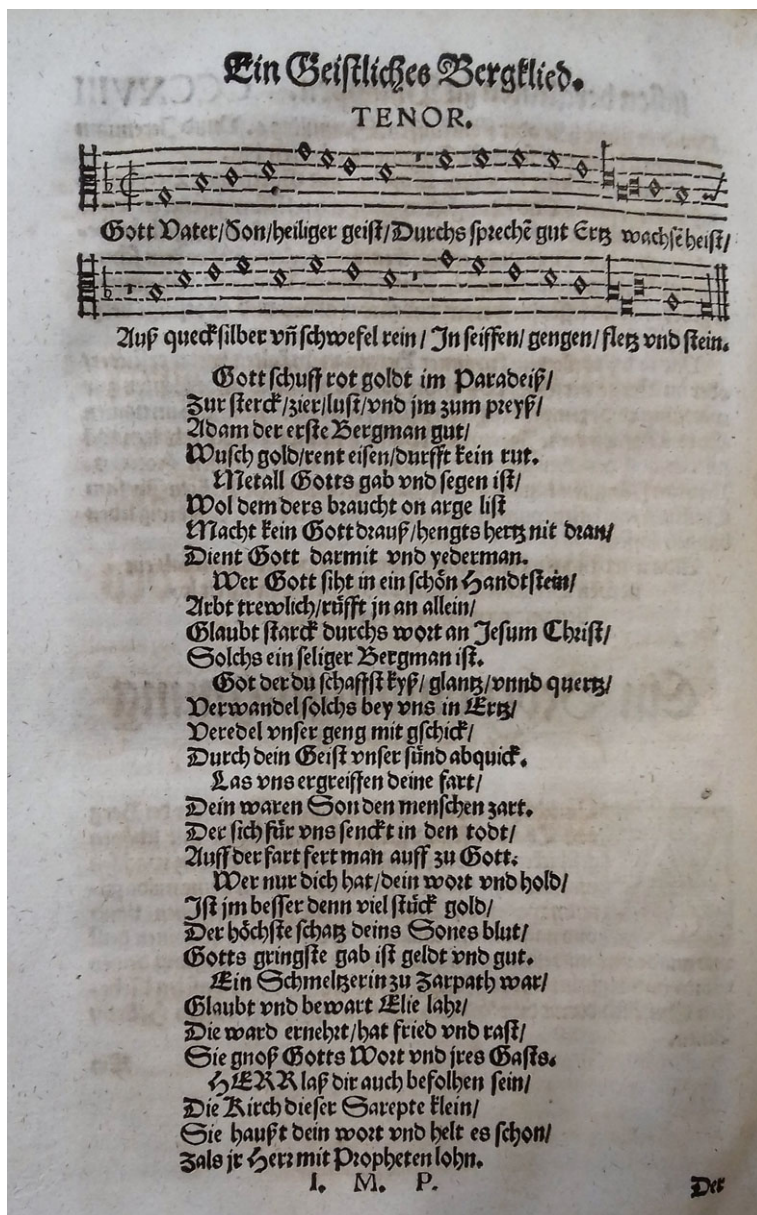 Ein Geistliches Bergklied.
TENOR.
Gott Vater/Son/heiliger geist/Durchs sprechẽ gut Ertz wachsẽ heist/
Auß quecksilber vñ schwefel rein/ In seiffen/ gengen/ fletz vnd stein.
Gott schuff rot goldt im Paradeiß/
Zur sterck/zier/lust/vnd jm zum preyß/
Adam der erste Bergman gut/
Wusch gold/rent eisen/durfft kein rut.
Metall Gotts gab vnd segen ist/
Wol dem ders braucht on arge list
Macht kein Gott drauß/hengts hertz nit dran/
Dient Gott darmit vnd yederman.
Wer Gott siht in ein schön Handtstein/
Arbt trewlich/rüfft jn an allein/
Glaubt starck durchs wort an Jesum Christ/
Solchs ein seliger Bergman ist.
Got der du schaffst kyß/ glantz/vnnd quertz/
Verwandel solchs bey vns in Ertz/
Veredel vnser geng mit gschick/
Durch dein Geist vnser sünd abquick.
Las vns ergreiffen deine fart/
Dein waren Son den menschen zart.
Der sich für vns senckt in den todt/
Auff der fart fert man auff zu Gott.
Wer nur dich hat/dein wort vnd hold/
Ist jm besser denn viel stück gold/
Der höchste schatz deins Sones blut/
Gotts gringste gab ist geldt vnd gut.
Ein Schmeltzerin zu Zarpath war/
Glaubt vnd bewart Elie lahr/
Die ward ernehrt/hat fried vnd rast/
Sie gnoß Gotts Wort vnd jres Gasts.
HERR laß dir auch befolhen sein/
Die Kirch dieser Sarepte klein/
Sie haußt dein wort vnd helt es schon/
Zals jr Herr mit Propheten lohn.
I. M. P.
Der